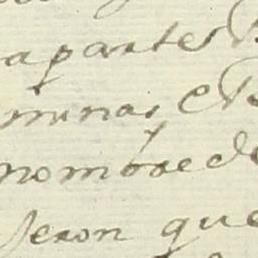 apartes
minas
nombre de
Jeron que